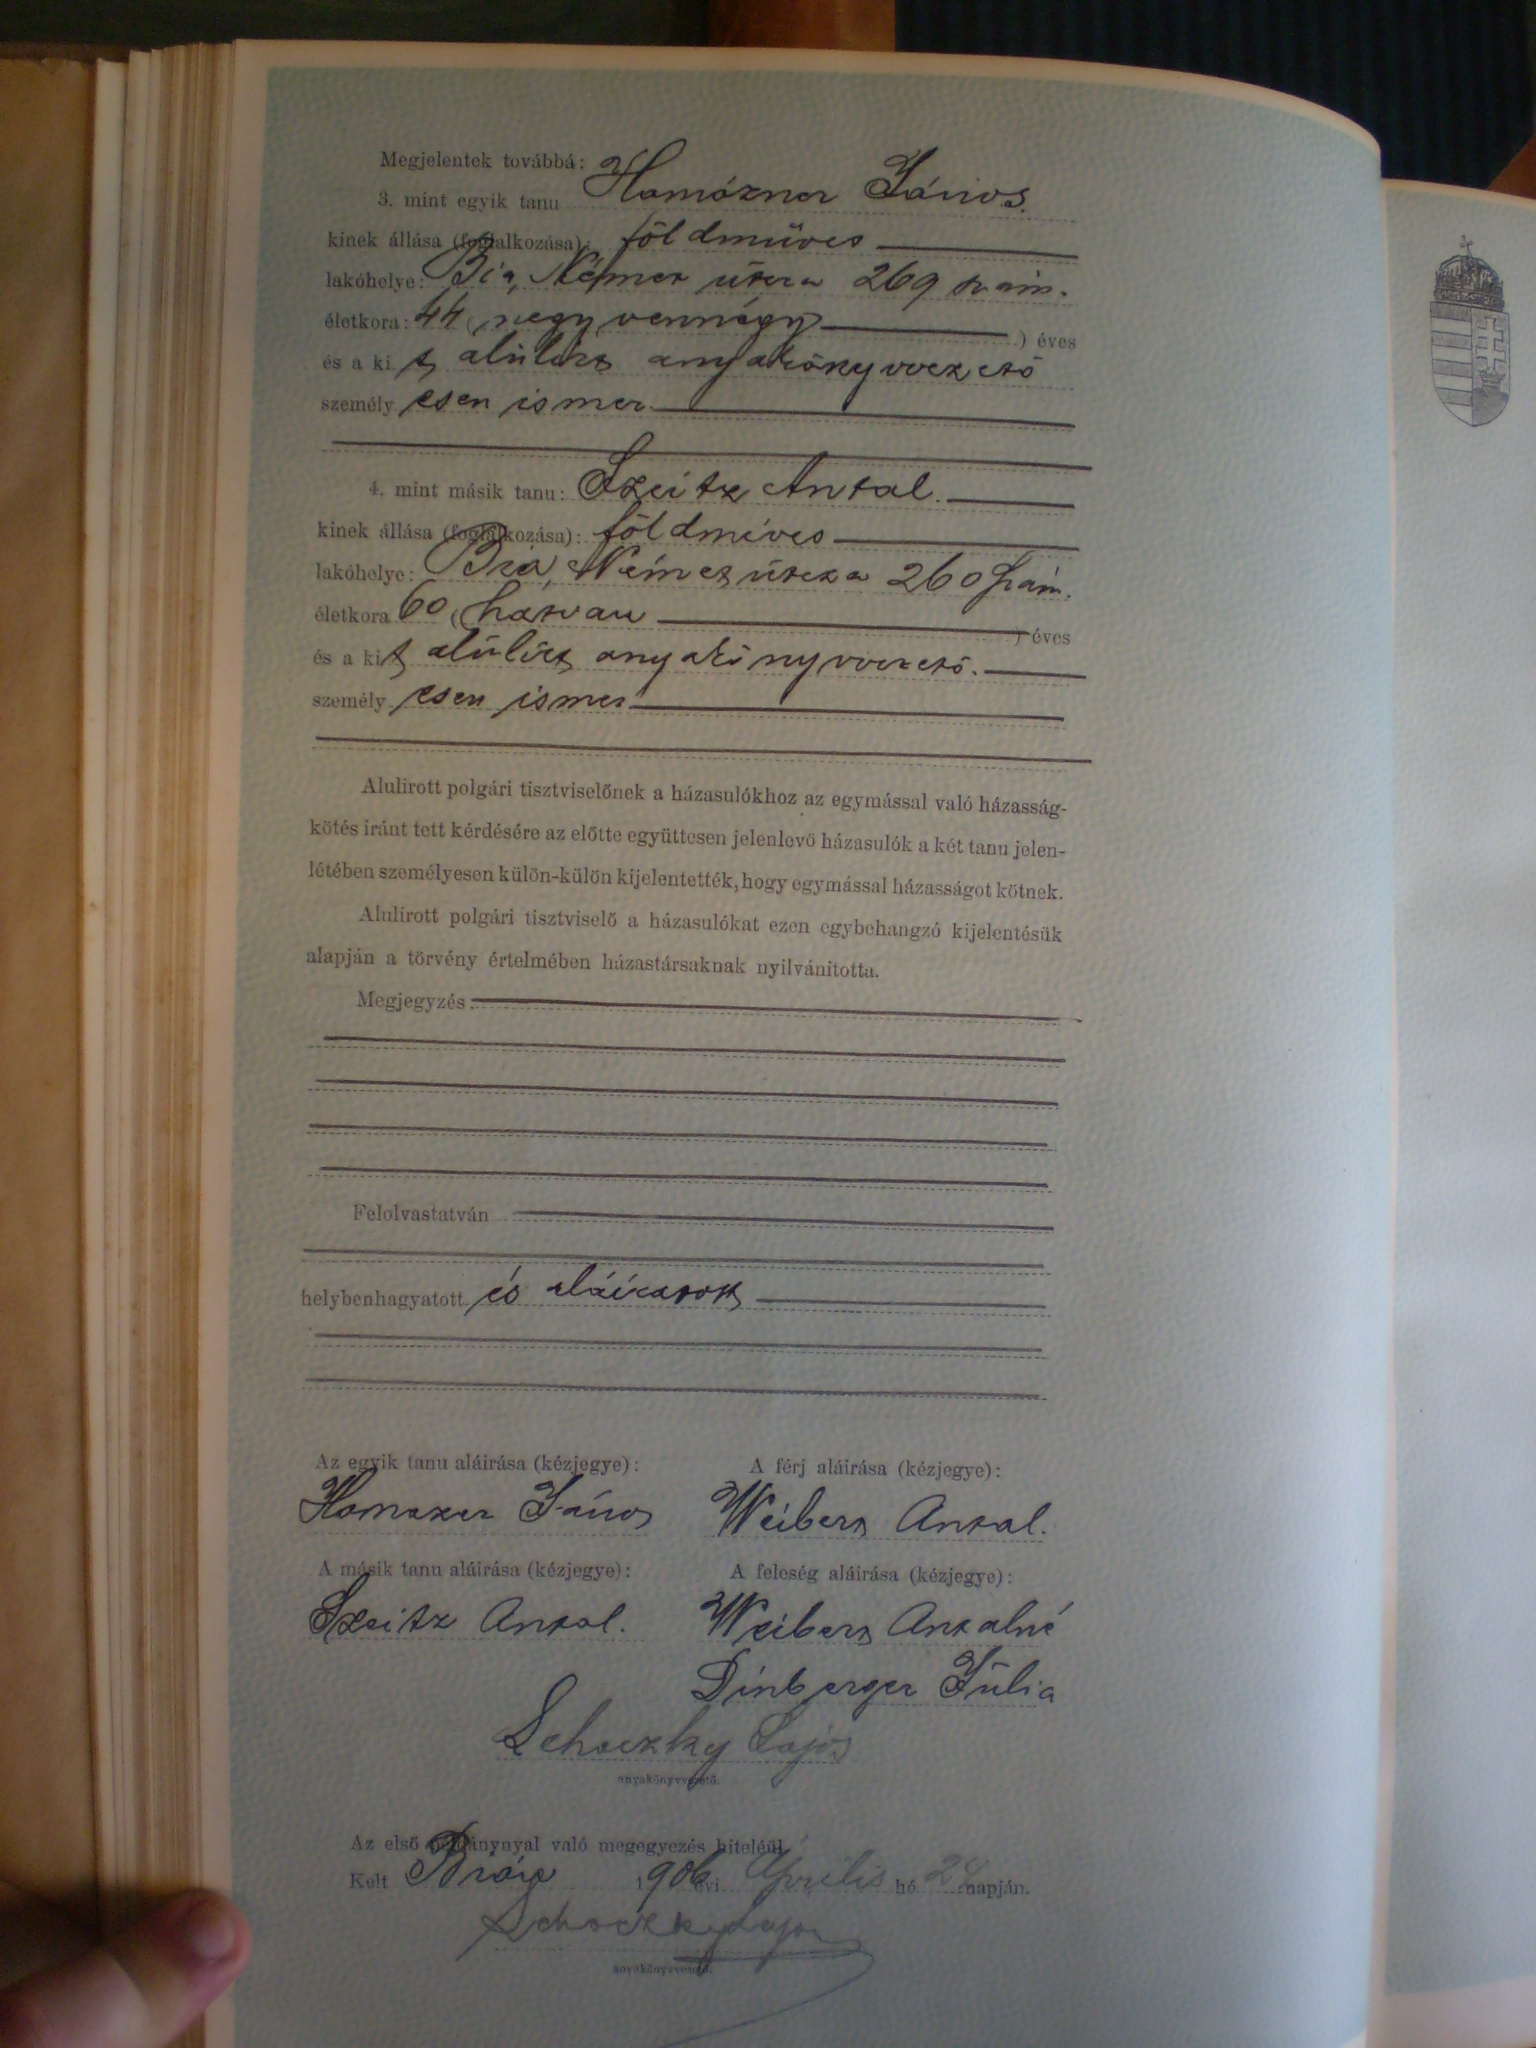 Megjelentek továbbá:
3. mint egyik tanu Hamózner János.
kinek állása (foglalkozása): földmüves
lakóhelye: Bia, Német útcza 269 szám.
életkora: 44 (negyvennégy) éves
és a kit alúlírt anyakönyvvezető
személyesen ismer.
4. mint másik tanu: Szeitz Antal.
kinek állása (foglalkozása): földmíves
lakóhelye: Bia, Német útcza 260 szám.
életkora 60 (hatvan) éves
és a kit alúlírt anyakönyvvezető.
személyesen ismer
Alulirott polgári tisztviselőnek a házasulókhoz az egymással való házasság-
kötés iránt tett kérdésére az előtte együttesen jelenlevő házasulók a két tanu jelen-
létében személyesen külön-külön kijelentették, hogy egymással házasságot kötnek.
Alulirott polgári tisztviselő a házasulókat ezen egybehangzó kijelentésük
alapján a törvény értelmében házastársaknak nyilvánitotta.
Megjegyzés:
Felolvastatván
helybenhagyatott és aláíratott
Az egyik tanu aláirása (kézjegye): A férj aláirása (kézjegye):
János Weibert Antal.
A másik tanu aláirása (kézjegye): A feleség aláirása (kézjegye):
Szeitz Antal. Weibert Antalné
Dinberger Júlia
Schoczky Lajos
anyakönyvvezető.
Az első példánynyal való megegyezés hiteléül
Kelt Bián 1906 évi Április hó 24 napján.
Schoczky Lajos
anyakönyvvezető.